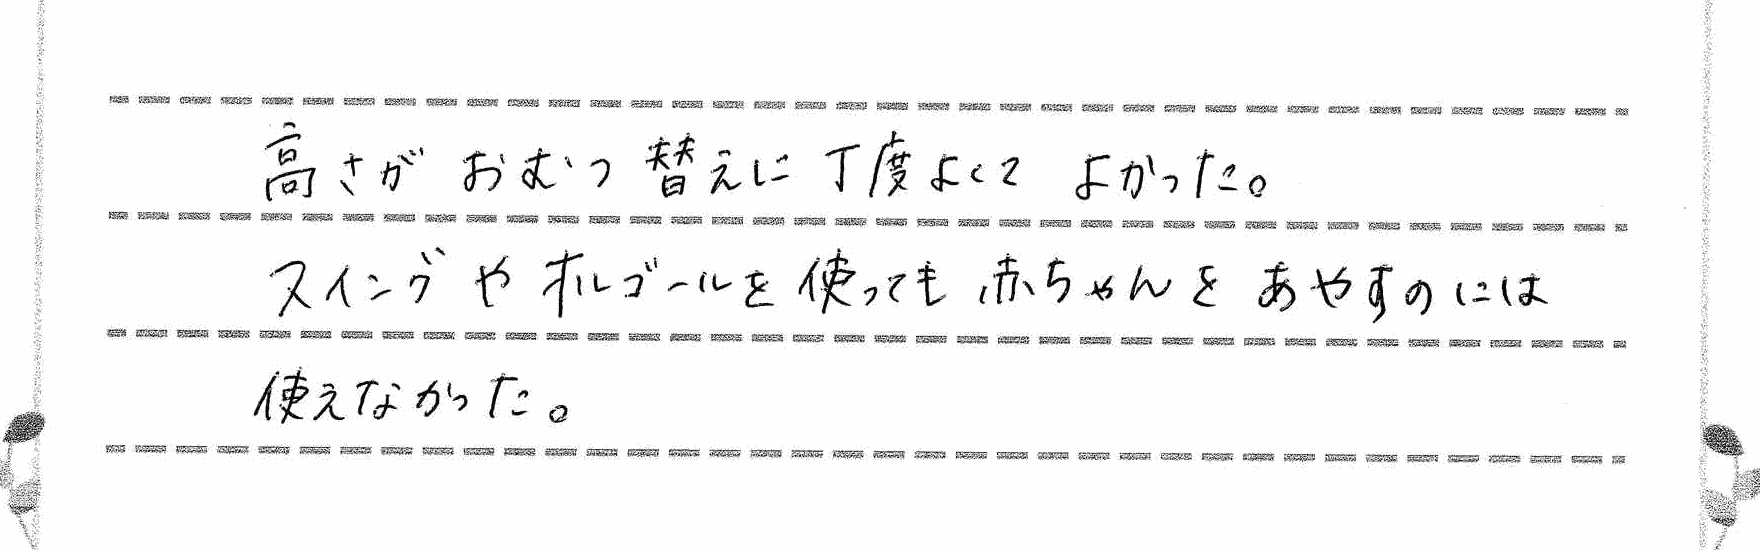 高さが おむつ 替えに 丁度よくて よかった。
スイングや オルゴールを 使っても 赤ちゃんを あやすのには
使えなかった。